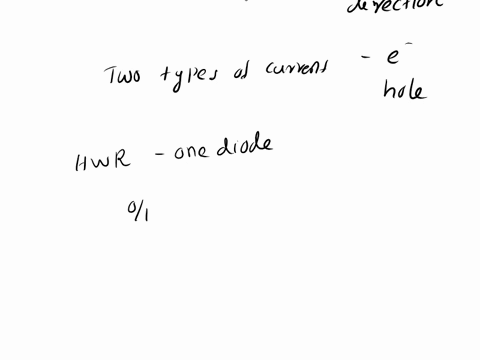 direction
Two types of current - e⁻
hole
HWR - one diode
o/